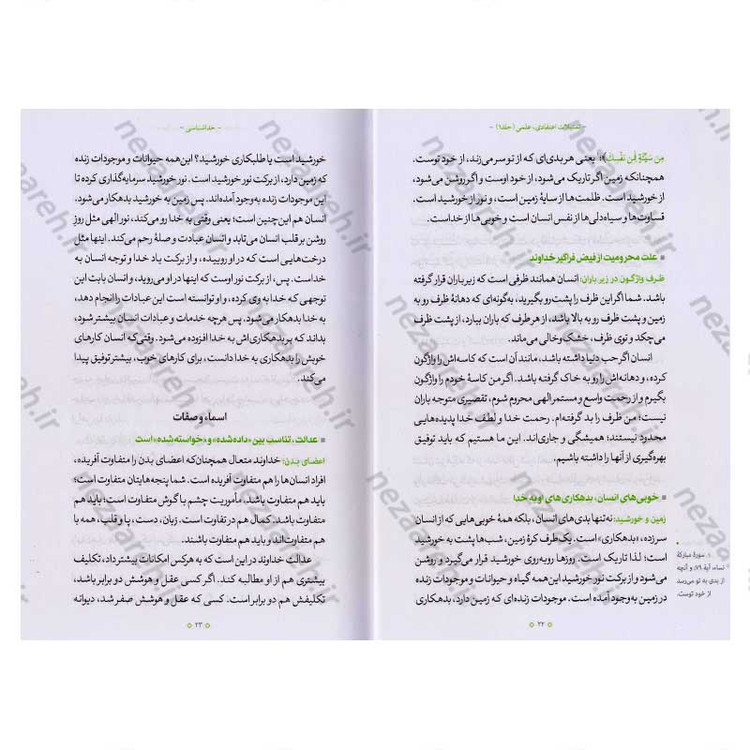 - تمثیلات اعتقادی، علمی (جلد۱) -
مِن سَیِّئَةٍ فَمِن نَفْسِكَ﴾؛۱ یعنی هر بدی‌ای که از تو سر می‌زند، از خود توست،
همچنانکه زمین اگر تاریک می‌شود، از خود اوست و اگر روشن می‌شود،
از خورشید است. ظلمت‌ها از سایهٔ زمین است، و نور از خورشید است.
قساوت‌ها و سیاه‌دلی‌ها از نفس انسان است و خوبی‌ها از خداست.
علت محرومیت از فیض فراگیر خداوند
ظرف واژگون در زیر باران: انسان همانند ظرفی است که زیر باران قرار گرفته
باشد. شما اگر این ظرف را پشت و رو بگیرید، به‌گونه‌ای که دهانهٔ ظرف رو به
زمین و پشت ظرف رو به بالا باشد، از هر طرف که باران ببارد، از پشت ظرف
می‌چکد و توی ظرف، خشک و خالی می‌ماند.
انسان اگر حب دنیا داشته باشد، مانند آن است که کاسه‌اش را واژگون
کرده، و دهانه‌اش را رو به خاک گرفته باشد. اگر من کاسهٔ خودم را واژگون
بگیرم و از رحمت واسع و مستمر الهی محروم شوم، تقصیری متوجه باران
نیست؛ من ظرف را بد گرفته‌ام. رحمت خدا و لطف خدا پدیده‌هایی
محدود نیستند؛ همیشگی و جاری‌اند. این ما هستیم که باید توفیق
بهره‌گیری از آنها را داشته باشیم.
خوبی‌های انسان، بدهکاری‌های او به خدا
زمین و خورشید: نه‌تنها بدی‌های انسان، بلکه همهٔ خوبی‌هایی که از انسان
سرزده، «بدهکاری» است. یک طرف کرهٔ زمین، شب‌ها پشت به خورشید
است؛ لذا تاریک است. روزها روبه‌روی خورشید قرار می‌گیرد و روشن
می‌شود و از برکت نور خورشید این همه گیاه و حیوانات و موجودات زنده
در زمین به‌وجود آمده است. موجودات زنده‌ای که زمین دارد، بدهکاری
۱. سورهٔ مبارکهٔ
نساء، آیهٔ ۷۹؛ و آنچه
از بدی به تو می‌رسد
از خود توست.
۲۲
- خداشناسی -
خورشید است یا طلبکاری خورشید؟ این‌همه حیوانات و موجودات زنده
که زمین دارد، از برکت نور خورشید است. نور خورشید سرمایه‌گذاری کرده تا
این موجودات زنده به‌وجود آمده‌اند. پس زمین به خورشید بدهکار می‌شود،
انسان هم این‌چنین است؛ یعنی وقتی به خدا رو می‌کند، نور الهی مثل روز
روشن بر قلب انسان می‌تابد و انسان عبادت و صلهٔ رحم می‌کند. اینها مثل
درخت‌هایی است که در او روییده، و از برکت یاد خدا و توجه انسان به
خداست. پس، از برکت نور اوست که اینها در او می‌روید، و انسان بابت این
توجهی که خدا به وی کرده، و او توانسته است این عبادات را انجام دهد،
به خدا بدهکار می‌شود. پس هرچه خدمات و عبادات انسان بیشتر شود،
بداند که بر بدهکاری‌اش به خدا افزوده می‌شود. وقتی‌که انسان کارهای
خوبش را بدهکاری به خدا دانست، برای کارهای خوب، بیشتر توفیق پیدا
می‌کند.
اسماء و صفات
عدالت، تناسب بین «داده‌شده» و «خواسته‌شده» است
اعضای بدن: خداوند متعال همچنان‌که اعضای بدن را متفاوت آفریده،
افراد انسان‌ها را هم متفاوت آفریده است. شما پنجه‌هایتان متفاوت است؛
باید هم متفاوت باشد. مأموریت چشم با گوش متفاوت است؛ باید هم
متفاوت باشد. کمال هم در تفاوت است. زبان، دست، پا و قلب، همه با
هم متفاوت‌اند و باید هم متفاوت باشند.
عدالت خداوند در این است که به هرکس امکانات بیشتر داد، تکلیف
بیشتری هم از او مطالبه کند. اگر کسی عقل و هوشش دو برابر باشد،
تکلیفش هم دو برابر است. کسی که عقل و هوشش صفر شد، دیوانه
۲۳
nezareh.ir